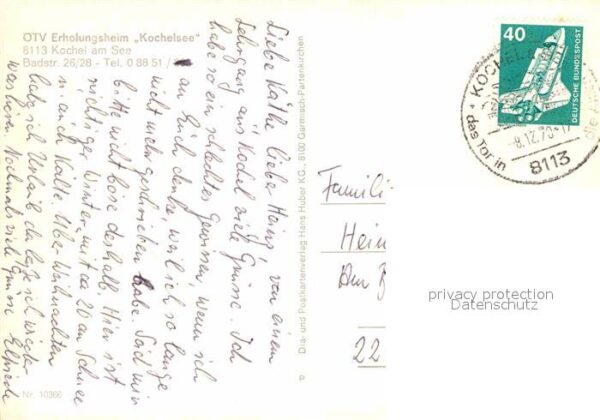 ÖTV Erholungsheim „Kochelsee"
8113 Kochel am See
Badstr. 26/28 - Tel. 0 88 51 /
Liebe Käthe, lieber Heinz, von einem
Lehrgang aus Kochel viele Grüsse. Ich
habe so ein schlechtes Gewissen, wenn ich
an Euch denke, weil ich so lange
nicht mehr geschrieben habe. Seid mir
bitte nicht böse deshalb. Hier ist
richtiger Winter mit ca 20 cm Schnee
u. auch Kälte. Über Weihnachten
habe ich Urlaub, da lasse ich wieder
was hören. Nochmals viele Grüsse
Nr. 10366
Dia- und Postkartenverlag Hans Huber KG, 8100 Garmisch-Partenkirchen
40
DEUTSCHE BUNDESPOST
KOCHEL
das Tor in
die
8.12.76
8113
Famili
Hein
22
privacy protection
Datenschutz